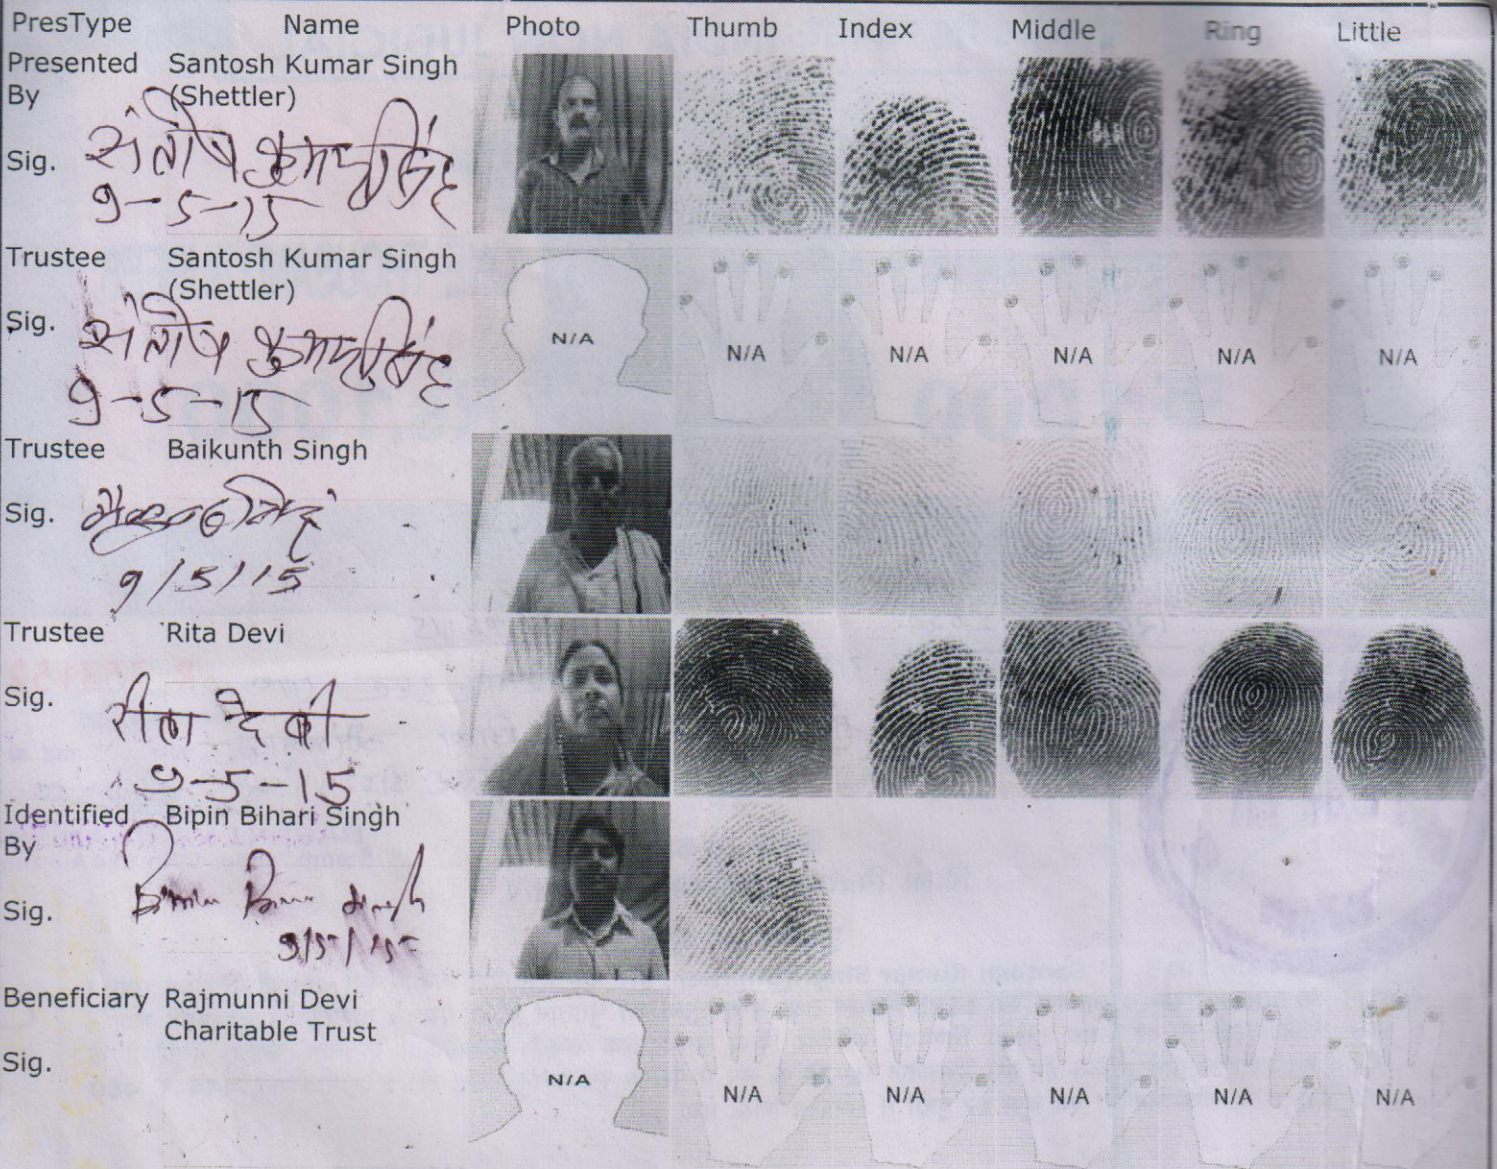 PresType Name Photo Thumb Index Middle Ring Little
Presented Santosh Kumar Singh
By (Shettler)
Sig. संतोष कुमार सिंह
9-5-15
Trustee Santosh Kumar Singh
(Shettler)
Sig. संतोष कुमार सिंह
9-5-15
N/A N/A N/A N/A N/A N/A
Trustee Baikunth Singh
Sig.
9/5/15
Trustee Rita Devi
Sig. रीता देवी
9-5-15
Identified Bipin Bihari Singh
By
Sig.
9/5/15
Beneficiary Rajmunni Devi
Charitable Trust
Sig.
N/A N/A N/A N/A N/A N/A